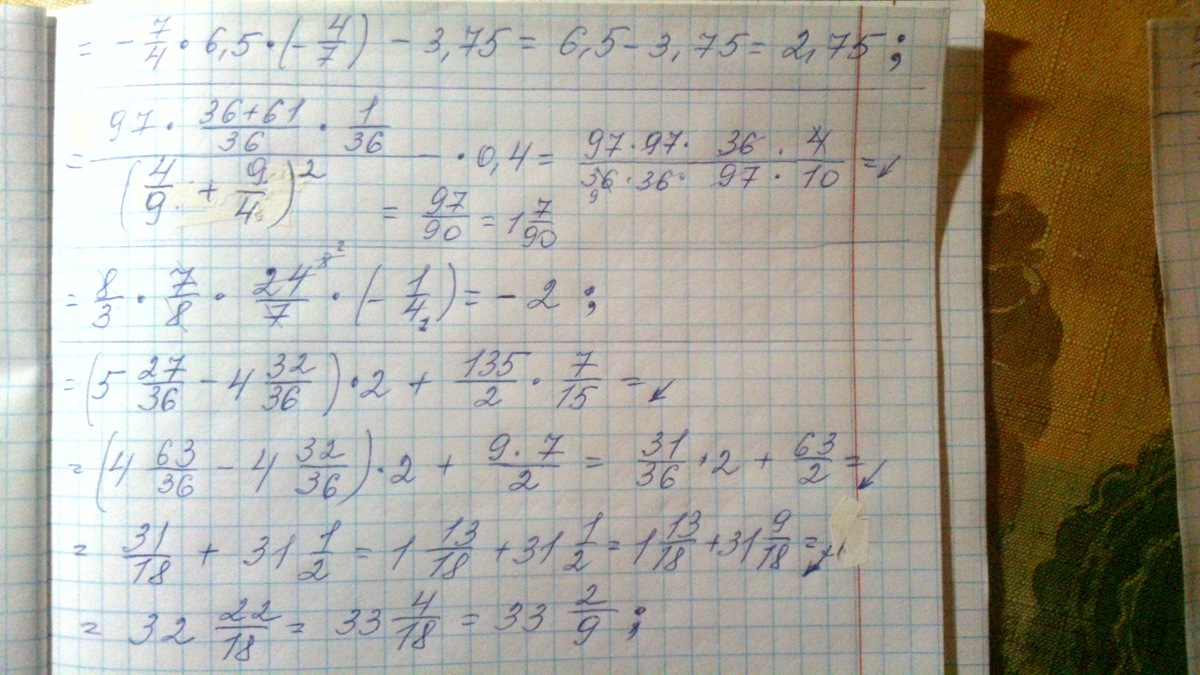 = - 7/4 · 6,5 · (- 4/7) - 3,75 = 6,5 - 3,75 = 2,75 ;
= (97 · (36+61)/36 · 1/36) / (4/9 + 9/4)² · 0,4 = (97 · 97 · 36 · 4)/(36 · 36 · 97 · 10) =↙
= 97/90 = 1 7/90
= 8/3 · 7/8 · 24/7 · (- 1/4) = - 2 ;
= (5 27/36 - 4 32/36) · 2 + 135/2 · 7/15 =↙
= (4 63/36 - 4 32/36) · 2 + (9 · 7)/2 = 31/36 · 2 + 63/2 =↙
= 31/18 + 31 1/2 = 1 13/18 + 31 1/2 = 1 13/18 + 31 9/18 =↙
= 32 22/18 = 33 4/18 = 33 2/9 ;